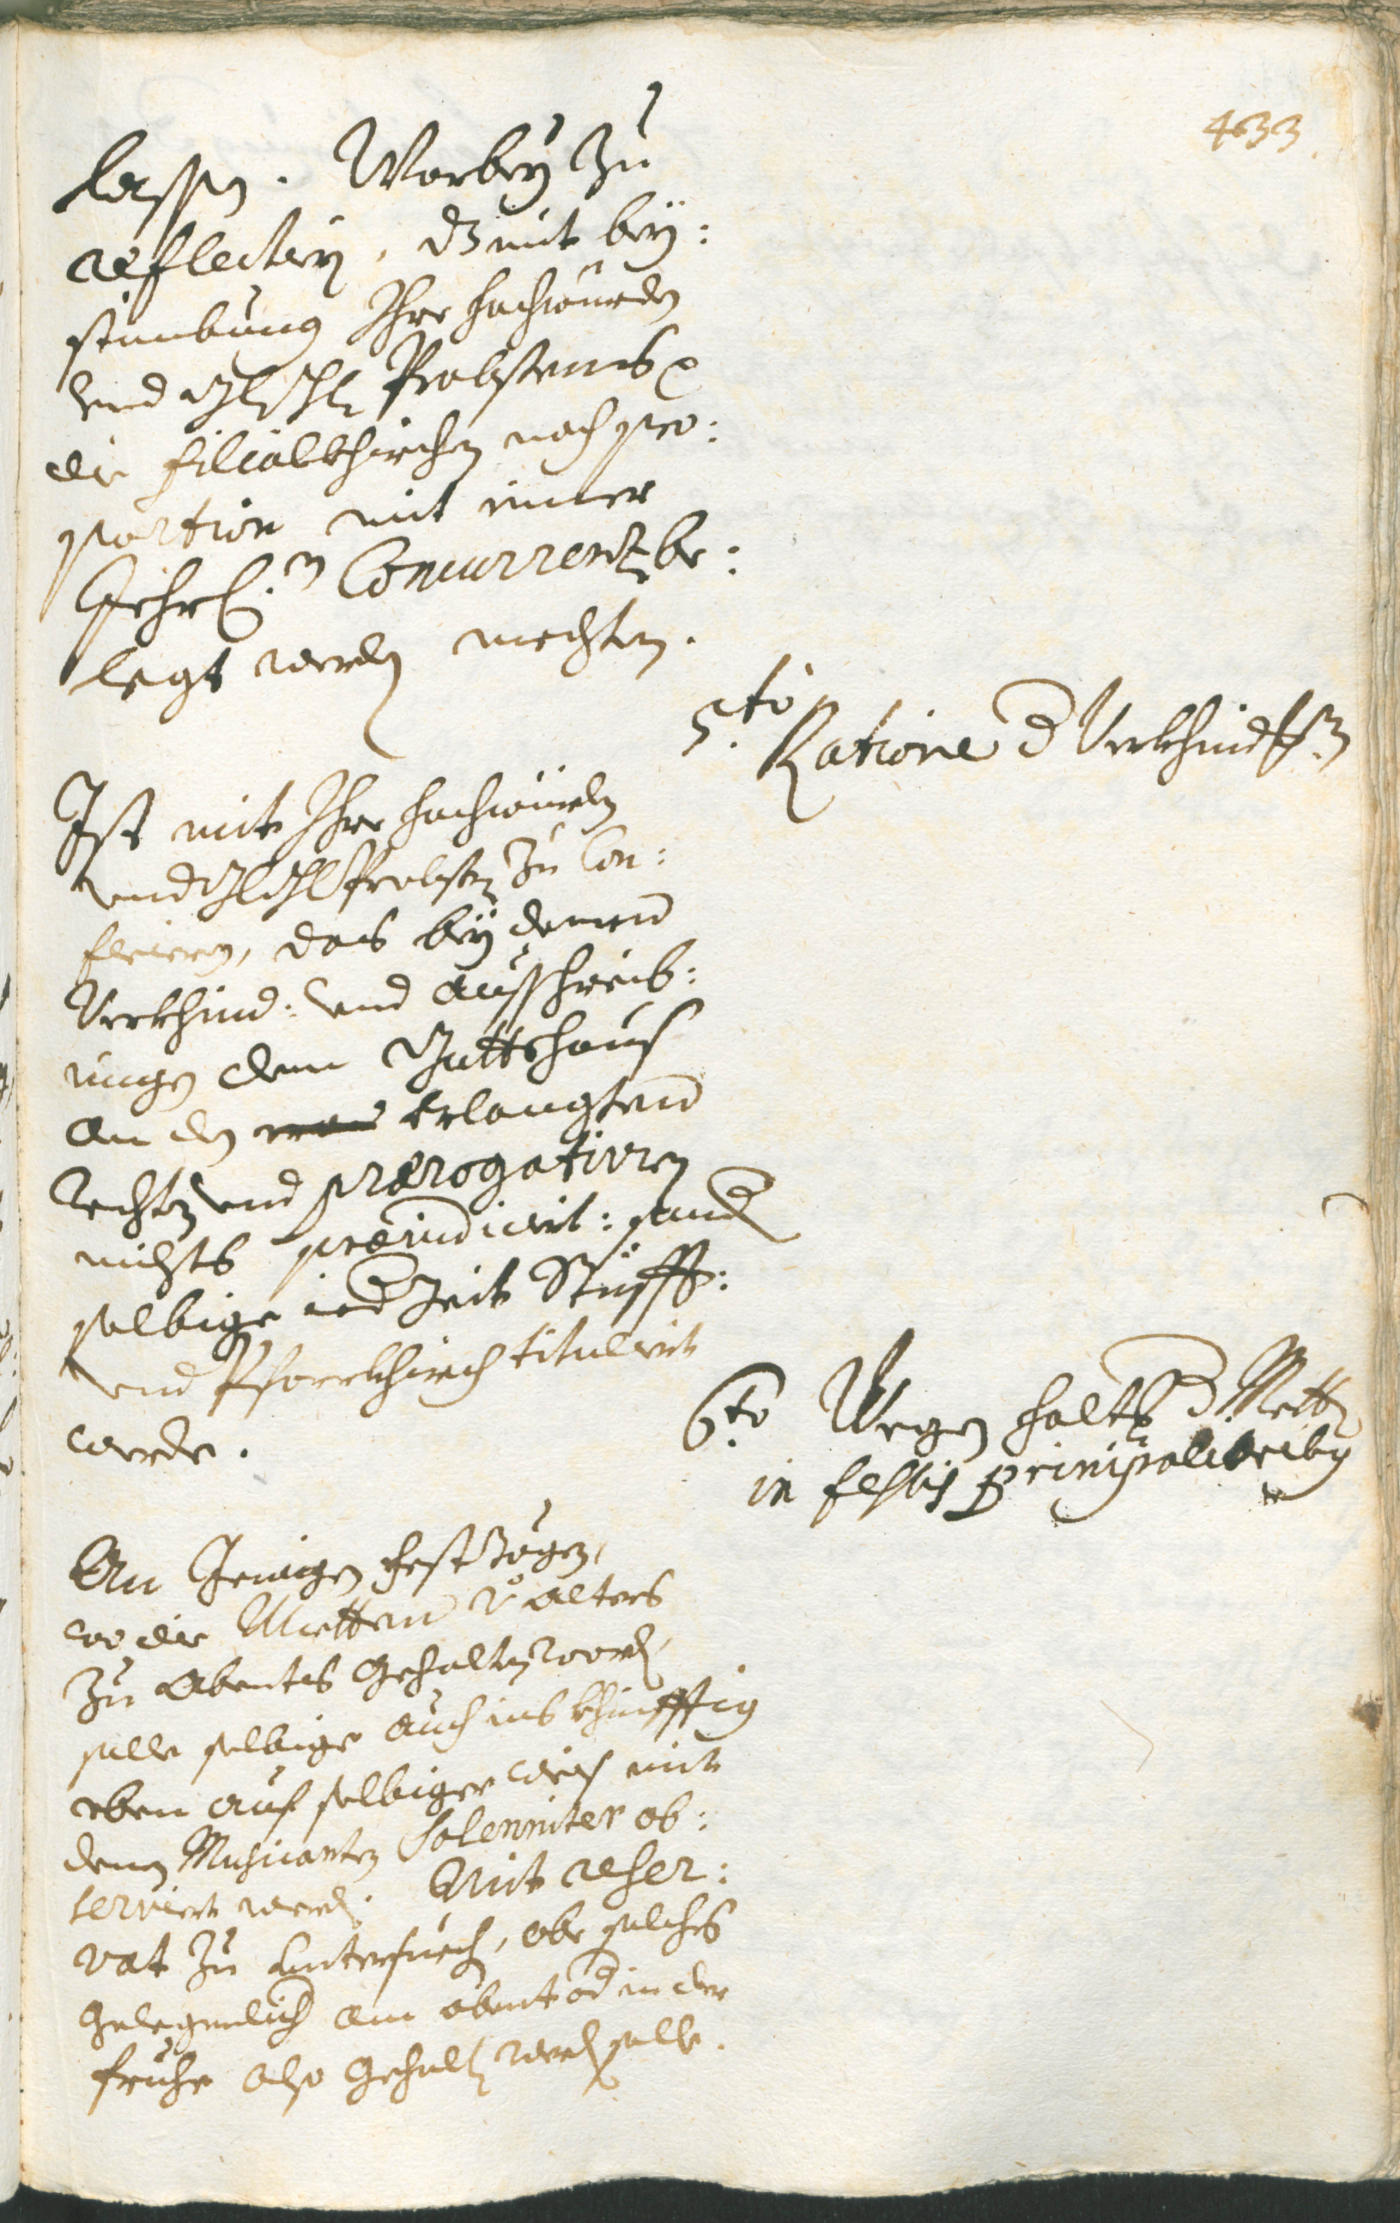 433
lassen. Worbey zu
reflectirn, dz mit bey:
stimbung Ihre hochwürden
vnd Probstens
die filialkhirchen nach pro:
portion mit einer
Jehrl:n Concurrenz be:
legt werden mechten.
5.to Ratione d Verkhindtg.
Ist mit Ihre hochwürden
vnd Probsten zu Con:
feriern, das bey denen
Verkhind: vnd ausschreib:
ungen dem Gottshaus
an den erlangten
rechten vnd prærogativen
nichts præiudicirt: sond
selbige ied Zeit Stüfft:
und Pfarrkhirch titulirt
werde.
6.to Wegen halts d Metten
in festis principalioribus
An Jenigen festtägen,
wo die Metten v alters
zu Abents gehalten word,
solle selbige auch ins khinfftig
eben auf selbiger weis mit
denen Musicanten Solenniter ob:
servirt werd. Mit reser:
vat zu untersuech, obe solches
gelegenlich am abent od in der
fruhe also gehalt werd solle.